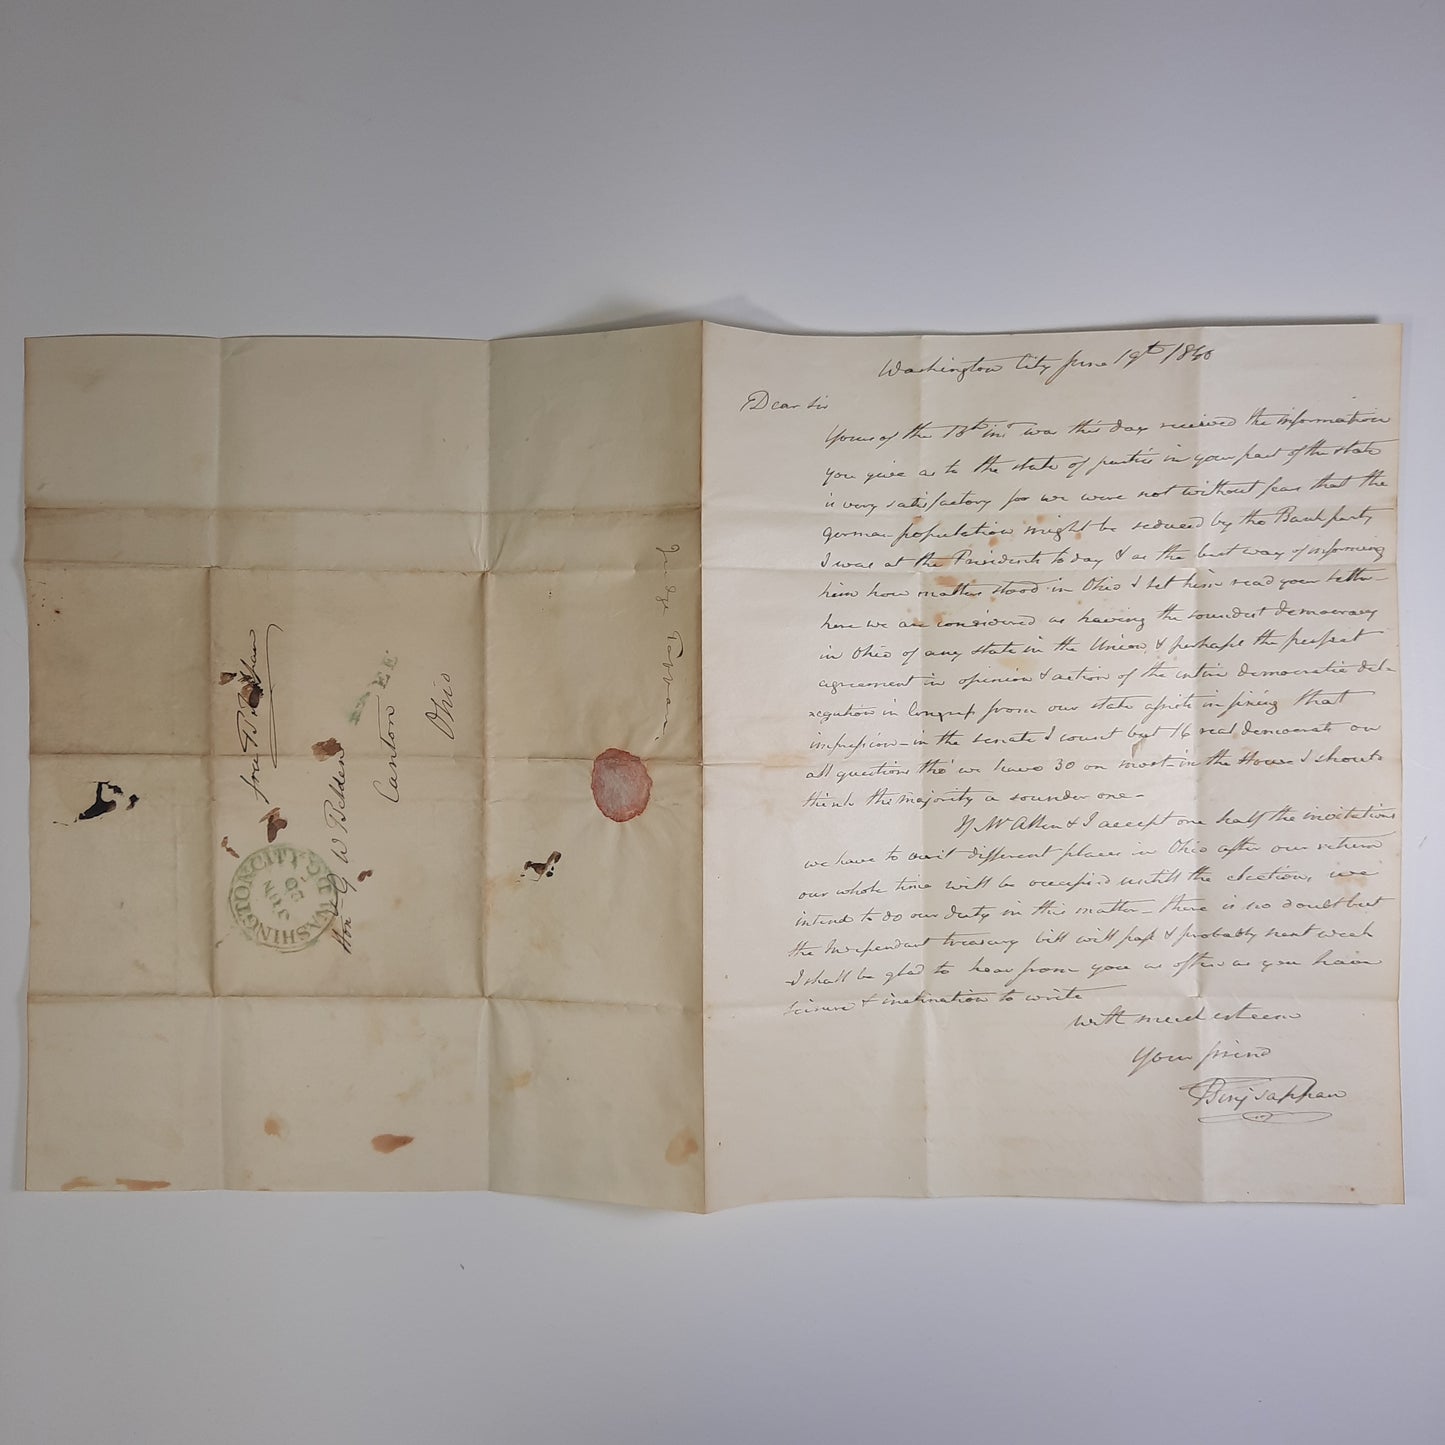 Washington City June 19th 1840
Dear Sir
Yours of the 13th inst was this day received the information
you give as to the state of parties in your part of the state
is very satisfactory for we were not without fear that the
german population might be seduced by the Bank party
I was at the Presidents to day & as the best way of informing
him how matters stood in Ohio I let him read your letter—
here we are considered as having the soundest democracy
in Ohio of any state in the Union, & perhaps the perfect
agreement in opinion & action of the entire democratic del-
egation in Congress from our state assists in fixing that
impression— in the senate I count but 16 real democrats on
all questions tho' we have 30 on most— in the House I should
think the majority a sounder one—
If Mr Allen & I accept one half the invitations
we have to visit different places in Ohio after our return
our whole time will be occupied untill the election, we
intend to do our duty in this matter— there is no doubt but
the Independant treasury bill will pass & probably next week
I shall be glad to hear from you as often as you have
leisure & inclination to write
with much esteem
Your friend
Benj Tappan
free B Tappan
FREE
Hon G W Belden
Canton
Ohio
WASHINGTON CITY
JUN
20
Judge Tappan